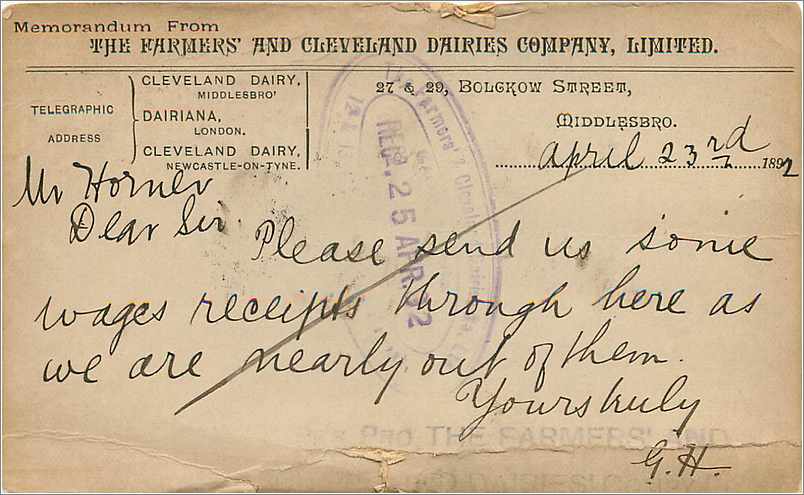 Memorandum From
THE FARMERS' AND CLEVELAND DAIRIES COMPANY, LIMITED.
TELEGRAPHIC
ADDRESS
CLEVELAND DAIRY,
MIDDLESBRO'
DAIRIANA,
LONDON.
CLEVELAND DAIRY,
NEWCASTLE-ON-TYNE.
27 & 29, BOLCKOW STREET,
MIDDLESBRO.
April 23rd 1892
Mr Horner
Dear Sir
Please send us some
wages receipts through here as
we are nearly out of them.
Yours truly
G.H.
The Farmers' &
REC. 25 APR 92
PRO THE FARMERS' AND
DAIRIES